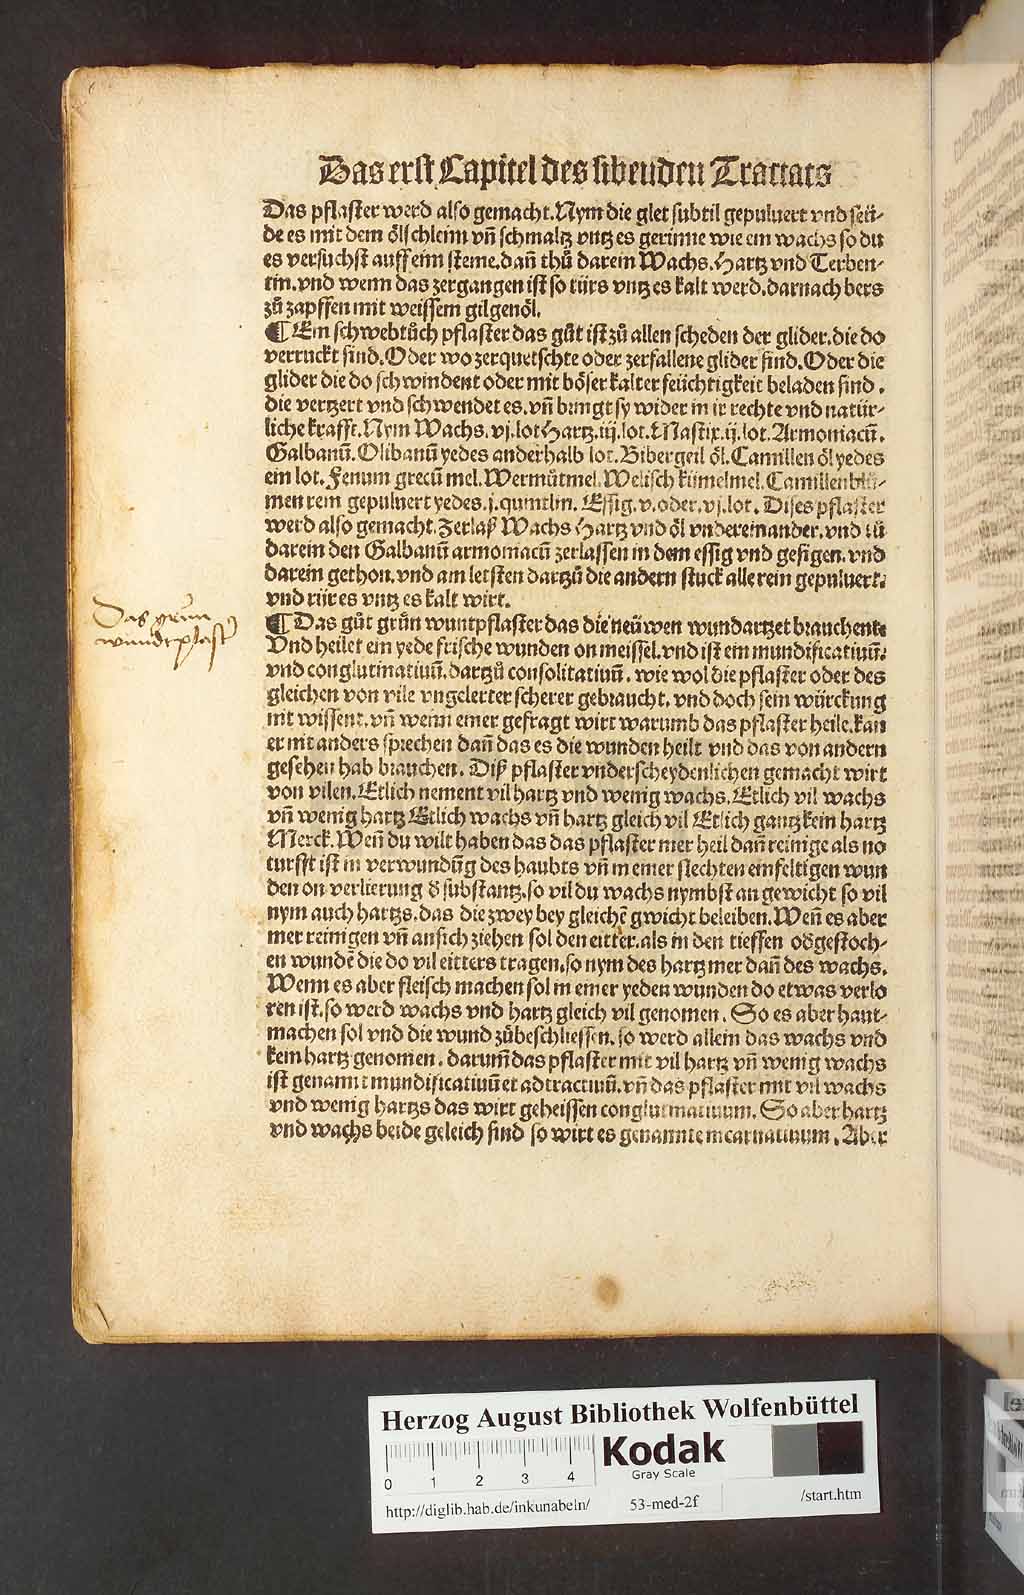 Das erst Capitel des sibenden Tractats
Das pflaster werd also gemacht. Nym die glet subtil gepuluert vnd seü-
de es mit dem ölschleim vñ schmaltz vntz es gerinne wie ein wachs so du
es versuchst auff eim steine. dañ thů darein Wachs. Hartz vnd Terben-
tin. vnd wenn das zergangen ist so rürs vntz es kalt werd. darnach bers
zů zapffen mit weissem gilgenöl.
¶ Ein schwebtůch pflaster das gůt ist zů allen scheden der glider. die do
verruckt sind. Oder wo zerquetschte oder zerfallene glider sind. Oder die
glider die do schwindent oder mit böser kalter feüchtigkeit beladen sind.
die vertzert vnd schwendet es. vñ bringt sy wider in ir rechte vnd natür-
liche krafft. Nym Wachs. vj. lot Hartz. iij. lot. Mastix. ij. lot. Armoniacū.
Galbanū. Olibanū yedes anderhalb lot. Bibergeil öl. Camillen öl yedes
ein lot. Fenum grecū mel. Wermůtmel. Welisch kümelmel. Camillenblů-
men rein gepuluert yedes. j. quintlin. Essig. v. oder. vj. lot. Dises pflaster
werd also gemacht. Zerlaß Wachs Hartz vnd öl vndereinander. vnd tů
darein den Galbanū armoniacū zerlassen in dem essig vnd gesigen. vnd
darein gethon. vnd am letsten dartzů die andern stuck alle rein gepuluert.
vnd rür es vntz es kalt wirt.
¶ Das gůt grůn wuntpflaster das die neüwen wundartzet brauchent.
Vnd heilet ein yede frische wunden on meissel. vnd ist ein mundificatiuū.
vnd conglutinatiuū. dartzů consolitatiuū. wie wol die pflaster oder des
gleichen von vile vngelerter scherer gebraucht. vnd doch sein würckung
nit wissent. vñ wenn einer gefragt wirt warumb das pflaster heile. kan
er nit anders sprechen dañ das es die wunden heilt vnd das von andern
gesehen hab brauchen. Diß pflaster vnderscheydenlichen gemacht wirt
von vilen. Etlich nement vil hartz vnd wenig wachs. Etlich vil wachs
vñ wenig hartz Etlich wachs vñ hartz gleich vil Etlich gantz kein hartz
Merck. Weñ du wilt haben das das pflaster mer heil dañ reinige als no
turfft ist in verwundūg des haubts vñ in einer slechten einfeltigen wun
den on verlierung d̄ substantz. so vil du wachs nymbst an gewicht so vil
nym auch hartzs. das die zwey bey gleichē gwicht beleiben. Weñ es aber
mer reinigen vñ an sich ziehen sol den eitter. als in den tieffen od̄ gestoch-
en wundē die do vil eitters tragen. so nym des hartz mer dañ des wachs.
Wenn es aber fleisch machen sol in einer yeden wunden do etwas verlo
ren ist. so werd wachs vnd hartz gleich vil genomen. So es aber haut-
machen sol vnd die wund zůbeschliessen. so werd allein das wachs vnd
kein hartz genomen. darum̄ das pflaster mit vil hartz vñ wenig wachs
ist genannt mundificatiuū et adtractiuū. vñ das pflaster mit vil wachs
vnd wenig hartzs das wirt geheissen conglutinatiuum. So aber hartz
vnd wachs beide geleich sind so wirt es genannt incarnatiuum. Aber
Das grun
wundtplaster
Herzog August Bibliothek Wolfenbüttel
0 1 2 3 4
Kodak
Gray Scale
http://diglib.hab.de/inkunabeln/ 53-med-2f /start.htm